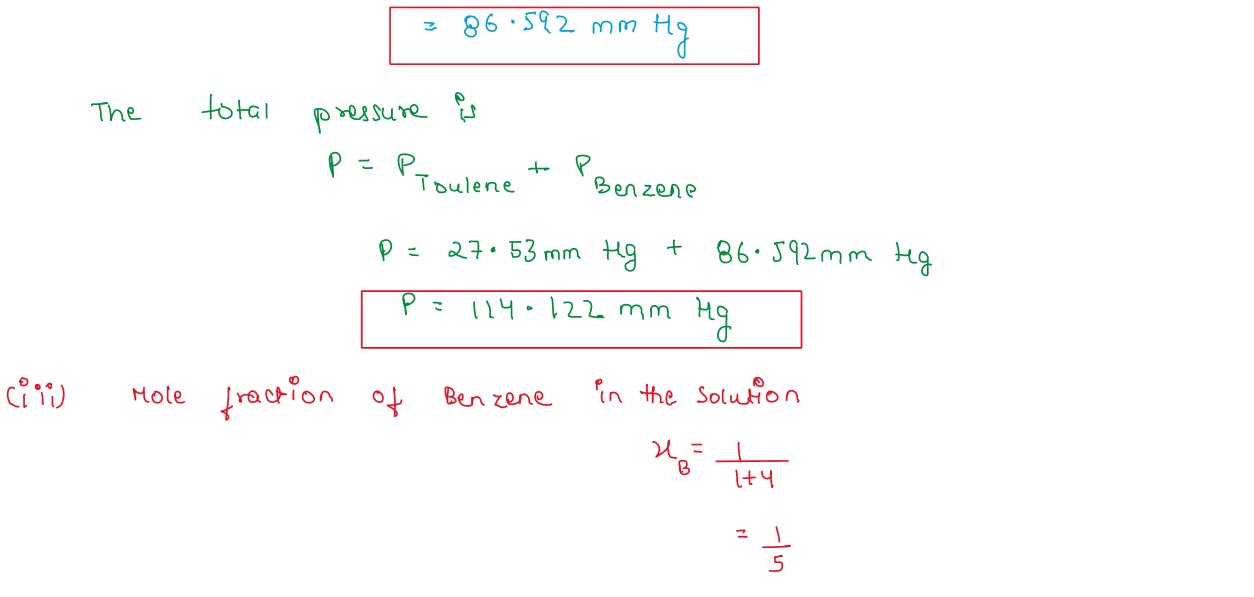 = 86.592 mm Hg
The total pressure is
P = P Toulene + P Benzene
P = 27.53 mm Hg + 86.592 mm Hg
P = 114.122 mm Hg
(iii) Mole fraction of Benzene in the solution
x_B = 1/(1+4)
= 1/5